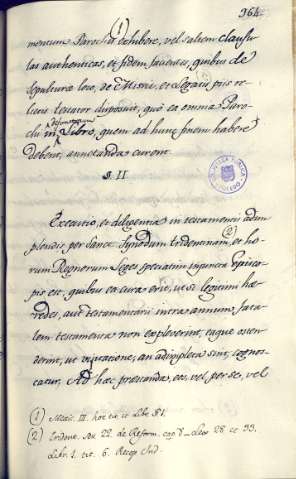 364.
mentum Parochis (1) exhibere, vel saltem clausu
las authenticas, et fidem facientes, quibus de
sepultura loco, de Missis, et Legatis piis re-
lictis testator disposuit, quò ea omnia Paro-
chi in defunctorum Libro, quem ad hunc finem habere
debent, annotanda curent.
§ II
Executio, et diligentia in testamentis adim
plendis per Sanct. Synodum tridentinam, (2) et ho-
rum Regnorum Leges speciatim injuncta Episco-
pis est, quibus ea cura erit, ut si legitimi hæ
redes, aut testamentarii intra annum fata
lem testamenta non expleverint, eaque osten
derint, ut visitatione, an adimpleta sint, cognos-
catur. Ad hæc præstanda, eos, vel per se, vel
(1) Mexic. III. hoc tit. Lib. §1.
(2) Trident. ses. 22. de Reform. cap 8. Leg 28 et 33.
Lib. 1. tit. 6. Recop Ind.